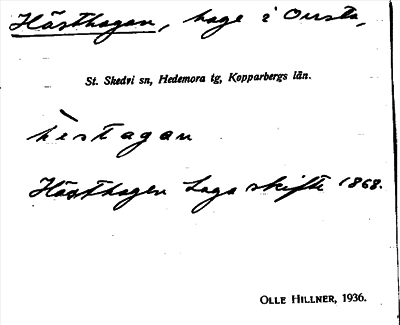 Hästhagan, hage i Onsta,
St. Skedvi sn, Hedemora tg, Kopparbergs län.
hèstagan
Hästhagen Laga skifte 1868.
OLLE HILLNER, 1936.